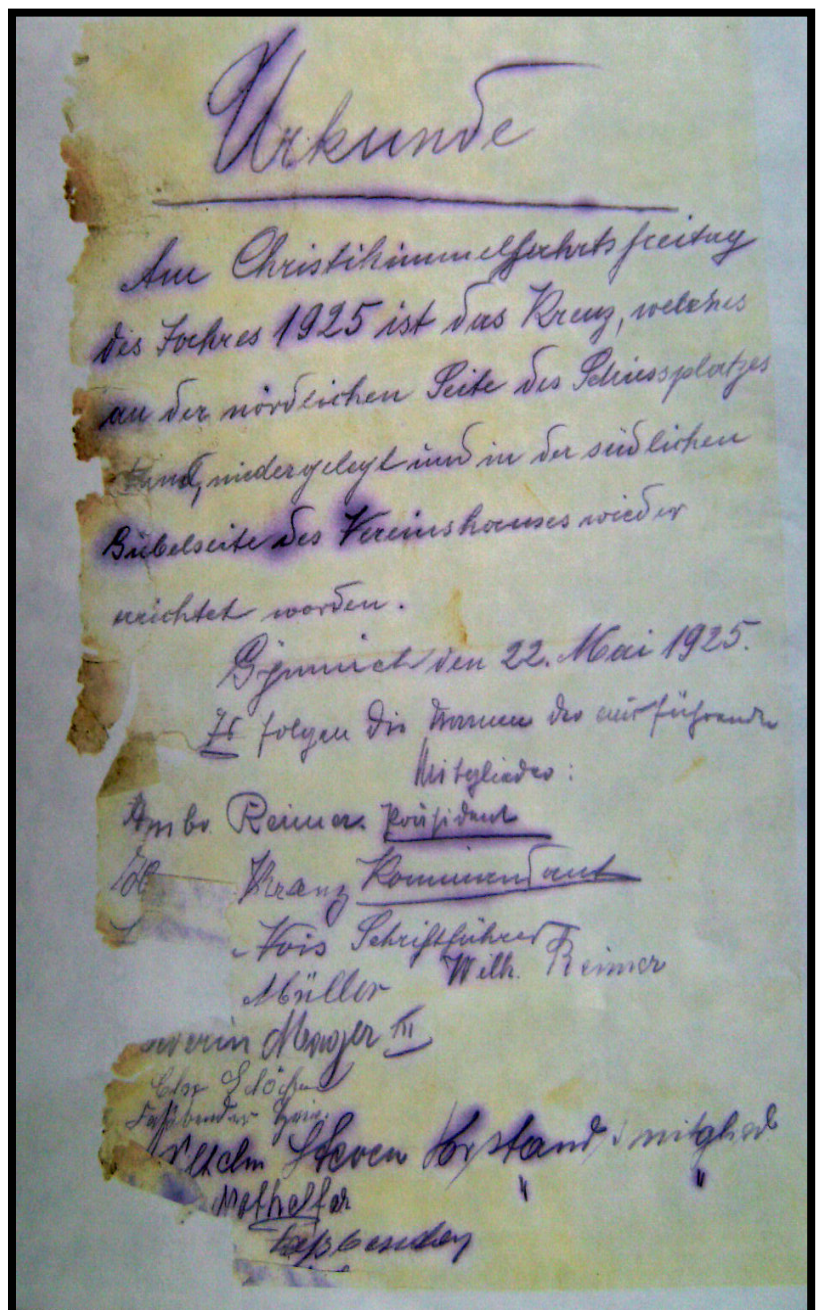 Urkunde
Am Christihimmelfahrtsfreitag
des Jahres 1925 ist das Kreuz, welches
an der nördlichen Seite des Schiessplatzes
stand, niedergelegt und in der südlichen
Giebelseite des Vereinshauses wieder
errichtet worden.
Gymnich den 22. Mai 1925.
Es folgen die Namen der
Mitglieder:
Reimer Präsident
Kranz Kommandant
Nois Schriftführer
Müller Wilh. Reimer
Meager III
Fassbender
Wilhelm Steven Vorstandsmitglied
Nothelfer " "
Faßbender